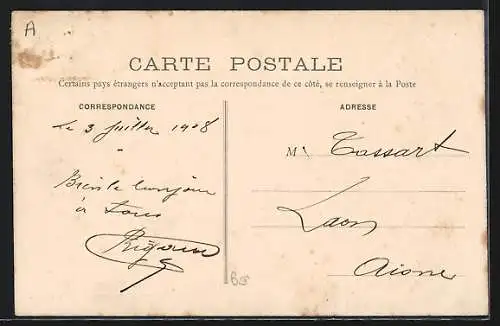 A
CARTE POSTALE
Certains pays étrangers n'acceptant pas la correspondance de ce côté, se renseigner à la Poste
CORRESPONDANCE
ADRESSE
Le 3 Juillet 1908
Bien le bonjour
à tous
M. Tassart
Laon
Aisne